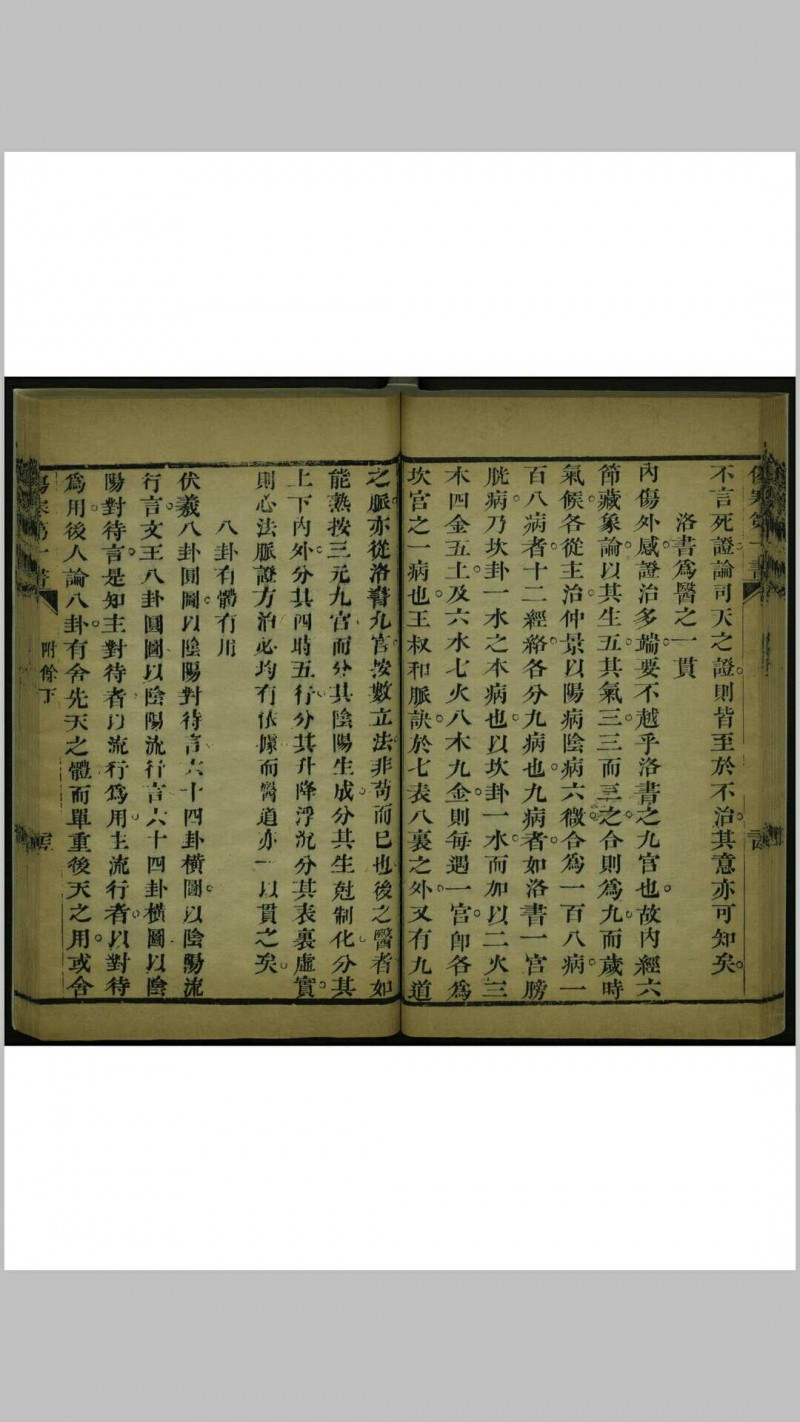 不言死證論司天之證則皆至於不治其意亦可知矣。
洛書爲醫之一貫
內傷外感證治多端要不越乎洛書之九宮也。故內經六
節藏象論以其生五其氣三三而三之合則爲九而歲時
氣候各從主治仲景以陽病陰病六微合爲一百八病。一
百八病者十二經絡各分九病也九病者如洛書一宮膀
胱病乃坎卦一水之本病也以坎卦一水而加以二火三
木四金五土及六水七火八木九金則每遇一宮卽各爲
坎宮之一病也。王叔和脈訣於七表八裏之外又有九道
之脈亦從洛書九宮按數立法非苟而已也後之醫者如
能熟按三元九宮而分其陰陽生成分其生尅制化分其
上下內外分其四時五行分其升降浮沉分其表裏虛實。
則心法脈證方治必均有依據而醫道亦一以貫之矣。
八卦有體有用
伏羲八卦圓圖以陰陽對待言六十四卦橫圖以陰陽流
行言文王八卦圓圖以陰陽流行言六十四卦橫圖以陰
陽對待言是知主對待者以流行爲用主流行者以對待
爲用後人論八卦有舍先天之體而單重後天之用或舍
傷寒第一書
附餘下